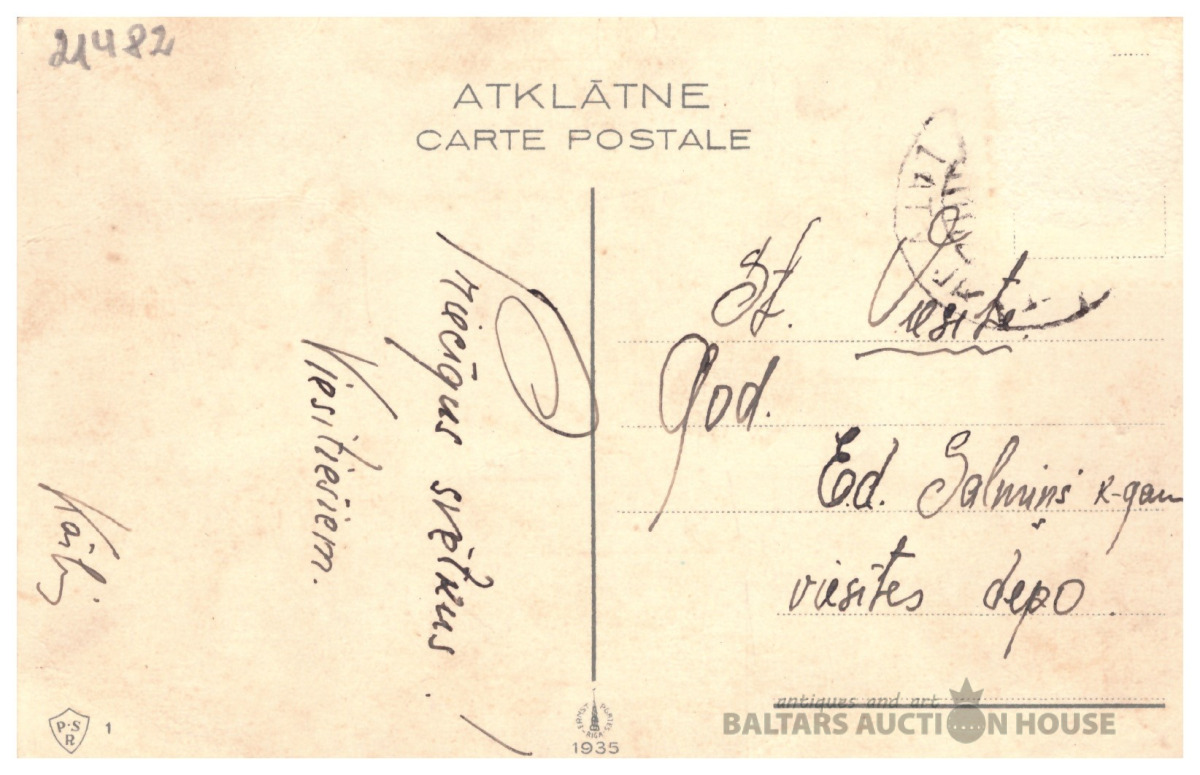 21482
ATKLĀTNE
CARTE POSTALE
Priecīgus svētkus
Viesītiešiem.
St. Viesīte.
God.
Ed. Salmiņš k-gam
viesītes depo.
P·S
R
1
1935
antiques and art
BALTARS AUCTION HOUSE